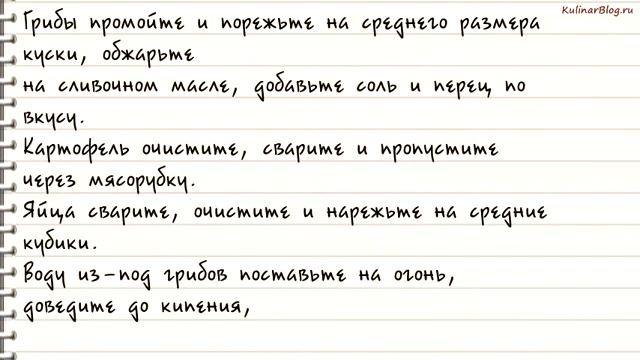 KulinarBlog.ru
Грибы промойте и порежьте на среднего размера
куски, обжарьте
на сливочном масле, добавьте соль и перец по
вкусу.
Картофель очистите, сварите и пропустите
через мясорубку.
Яйца сварите, очистите и нарежьте на средние
кубики.
Воду из-под грибов поставьте на огонь,
доведите до кипения,